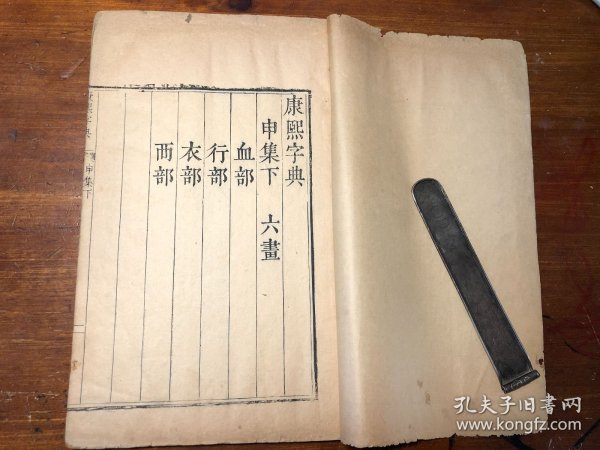 康熙字典
申集下 六畫
血部
行部
衣部
襾部
申集下
孔夫子旧书网
www.kongfz.com